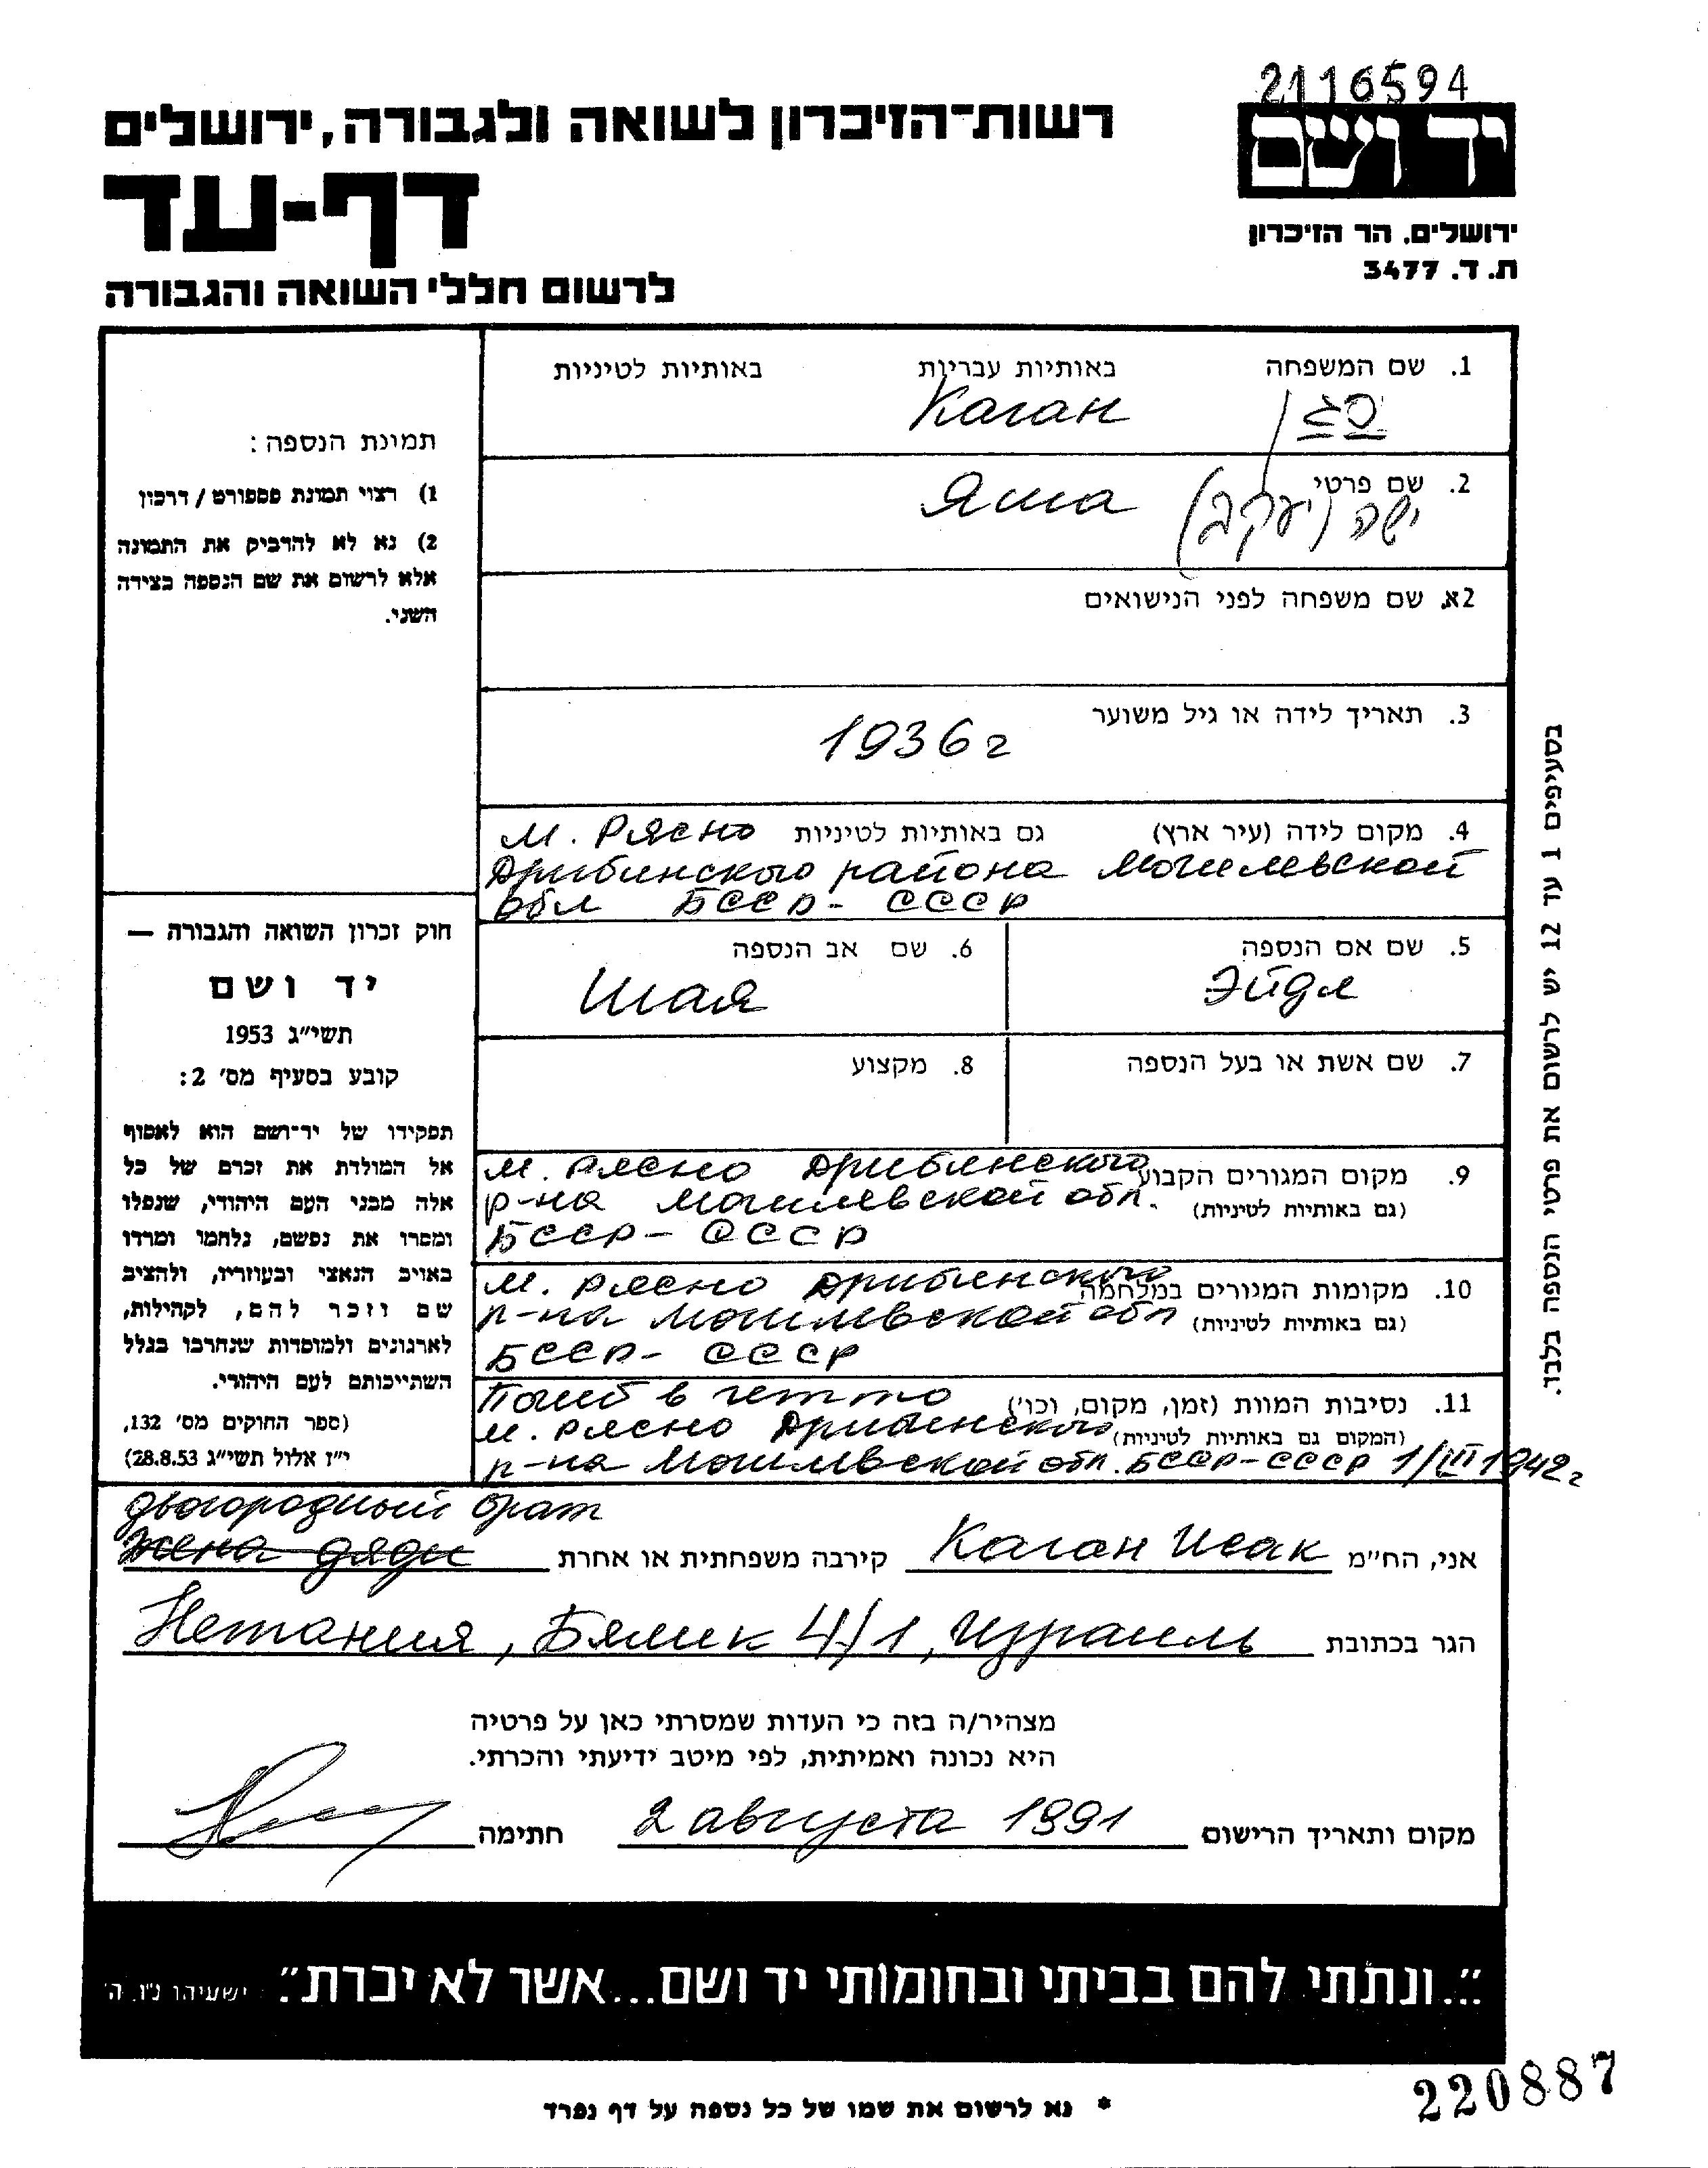 2116594
יד ושם
ירושלים. הר הזיכרון
ת. ד. 3477
רשות־הזיכרון לשואה ולגבורה, ירושלים
דף-עד
לרשום חללי השואה והגבורה
1. שם המשפחה באותיות עבריות באותיות לטיניות
Каган
2. שם פרטי
Яша
ישה (יעקב)
2א. שם משפחה לפני הנישואים
3. תאריך לידה או גיל משוער
1936 г
4. מקום לידה (עיר ארץ) גם באותיות לטיניות м. Рясно
Дрибинского района Могилевской
обл БССР - СССР
5. שם אם הנספה
Эйдл
6. שם אב הנספה
Шая
7. שם אשת או בעל הנספה
8. מקצוע
9. מקום המגורים הקבוע м. Рясно Дрибинского
(גם באותיות לטיניות) р-на Могилевской обл.
БССР - СССР
10. מקומות המגורים במלחמה м. Рясно Дрибинского
(גם באותיות לטיניות) р-на Могилевской обл
БССР - СССР
11. נסיבות המוות (זמן, מקום, וכו') Погиб в гетто
(המקום גם באותיות לטיניות) м. Рясно Дрибинского
р-на Могилевской обл. БССР - СССР 1/III 1942 г
תמונת הנספה:
1) רצוי תמונת פספורט / דרכון
2) נא לא להדביק את התמונה
אלא לרשום את שם הנספה בצידה
השני.
חוק זכרון השואה והגבורה —
יד ושם
תשי״ג 1953
קובע בסעיף מס׳ 2:
תפקידו של יד־ושם הוא לאסוף
אל המולדת את זכרם של כל
אלה מבני העם היהודי, שנפלו
ומסרו את נפשם, נלחמו ומרדו
באויב הנאצי ובעוזריו, ולהציב
שם וזכר להם, לקהילות,
לארגונים ולמוסדות שנחרבו בגלל
השתייכותם לעם היהודי.
(ספר החוקים מס׳ 132,
י״ז אלול תשי״ג 28.8.53)
בסעיפים 1 עד 12 יש לרשום את פרטי הנספה בלבד.
двоюродный брат
אני, הח״מ Каган Исак קירבה משפחתית או אחרת жена дяди
הגר בכתובת Нетания, Бялик 4/1, Израиль
מצהיר/ה בזה כי העדות שמסרתי כאן על פרטיה
היא נכונה ואמיתית, לפי מיטב ידיעתי והכרתי.
מקום ותאריך הרישום 2 августа 1991 חתימה
״...ונתתי להם בביתי ובחומותי יד ושם...אשר לא יכרת״. ישעיהו נ״ו, ה׳
220887
* נא לרשום את שמו של כל נספה על דף נפרד